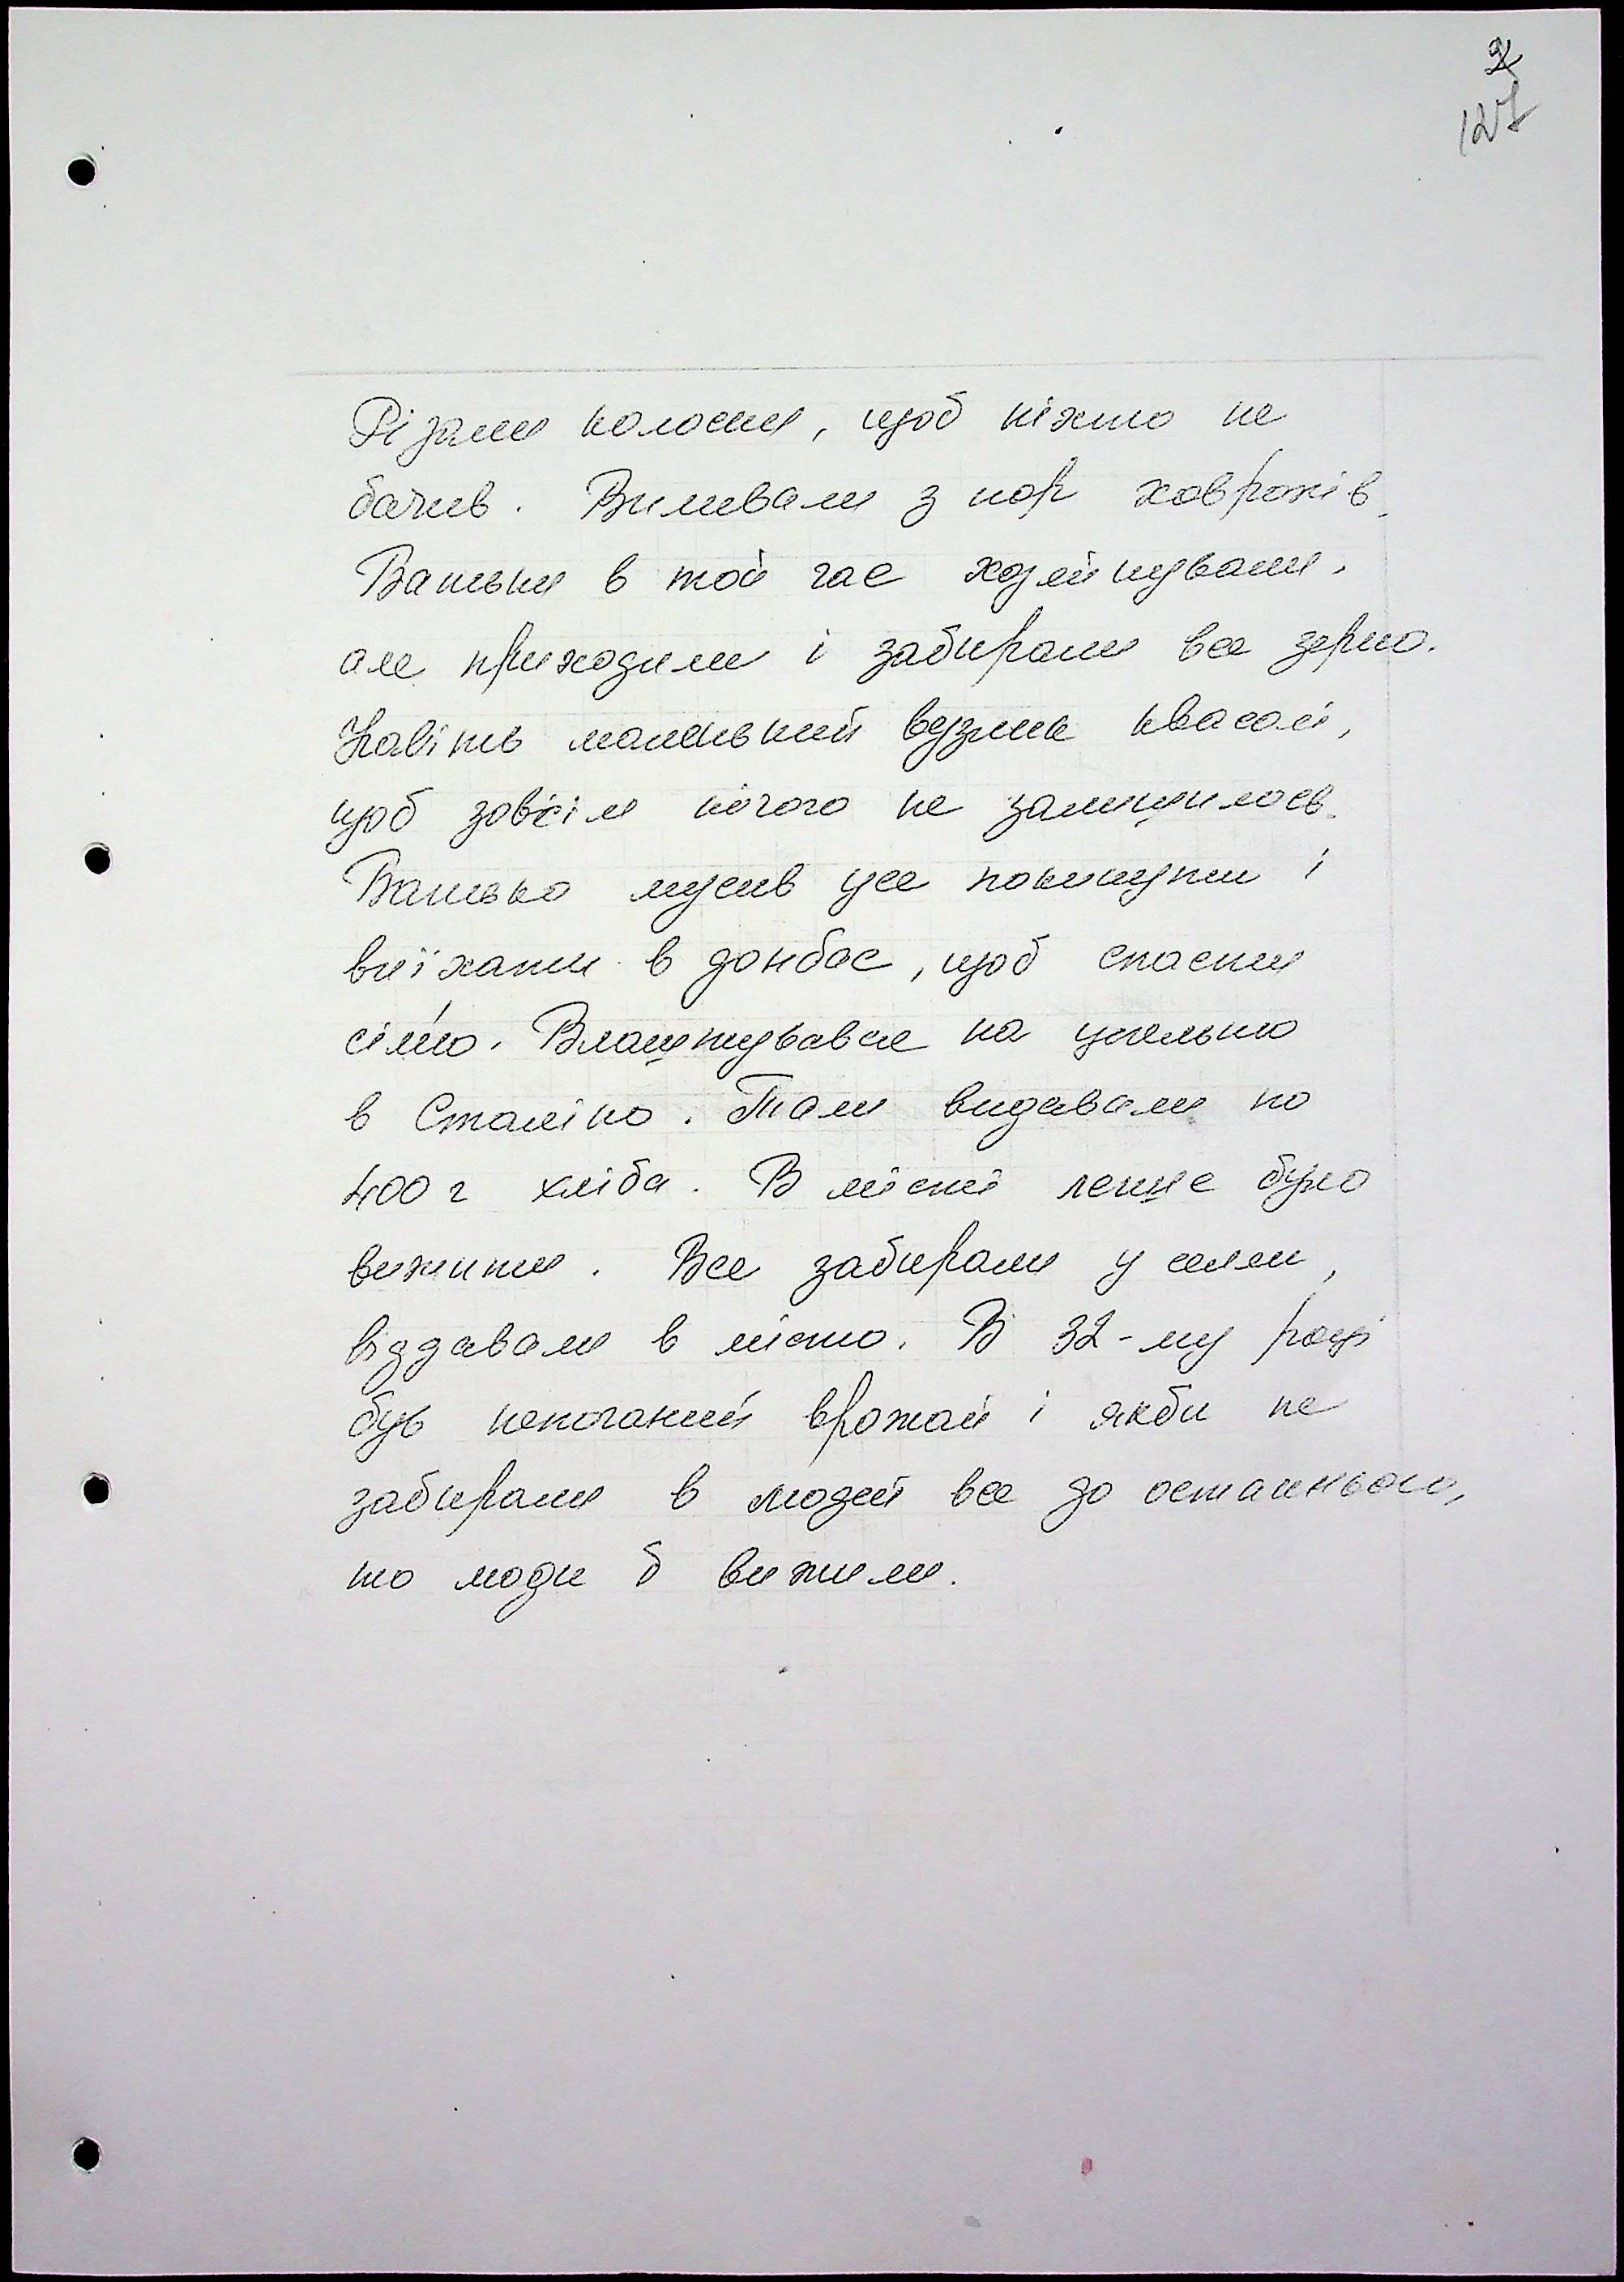 2
127
Різали колоски, щоб ніхто не
бачив. Виливали з нор ховрахів.
Батьки в той час хазяйнували,
але приходили і забирали все зерно.
Навіть маленький вузлик квасолі,
щоб зовсім нічого не залишилось.
Батько мусив усе покинути і
виїхати в донбас, щоб спасти
сім'ю. Влаштувався на
в Сталіно. Там видавали по
400 г хліба. В місті легше було
вижити. Все забирали у селян,
віддавали в місто. В 32-му році
був непоганий врожай і якби не
забирали в людей все до останнього,
то люди б вижили.